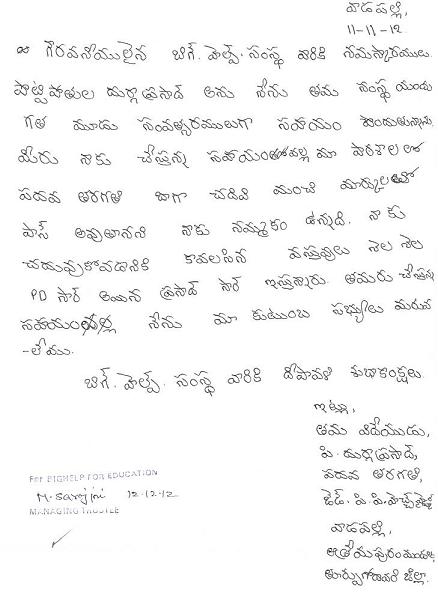 వాడపల్లి,
11-11-12.
గౌరవనీయులైన బిగ్. హెల్ప్. సంస్థ వారికి నమస్కారములు.
పాల్పిపాతుల దుర్గాప్రసాద్ అను నేను తమ సంస్థ యందు
గత మూడు సంవత్సరములుగా సహాయం పొందుతున్నాను.
మీరు నాకు చేస్తున్న సహాయం వల్ల మా పాఠశాలలో
పదవ తరగతి బాగా చదివి మంచి మార్కులతో
పాస్ అవుతానని నాకు నమ్మకం ఉన్నది. నాకు
చదువుకోవడానికి కావలసిన వస్తువులు నెల నెల
PD సార్ అయిన ప్రసాద్ సార్ ఇస్తున్నారు. తమరు చేస్తున్న
సహాయం నేను మా కుటుంబ సభ్యులు మరువ
-లేము.
బిగ్. హెల్ప్. సంస్థ వారికి దీపావళి శుభాకాంక్షలు.
ఇట్లు,
తమ విదేయుడు,
పి. దుర్గాప్రసాద్,
పదవ తరగతి,
జెడ్. పి. పి. హెచ్
వాడపల్లి,
ఆత్రేయపురం మండలం,
తూర్పుగోదావరి జిల్లా.
FOR BIGHELP FOR EDUCATION
M. Sarojini 12-12-12
MANAGING TRUSTEE